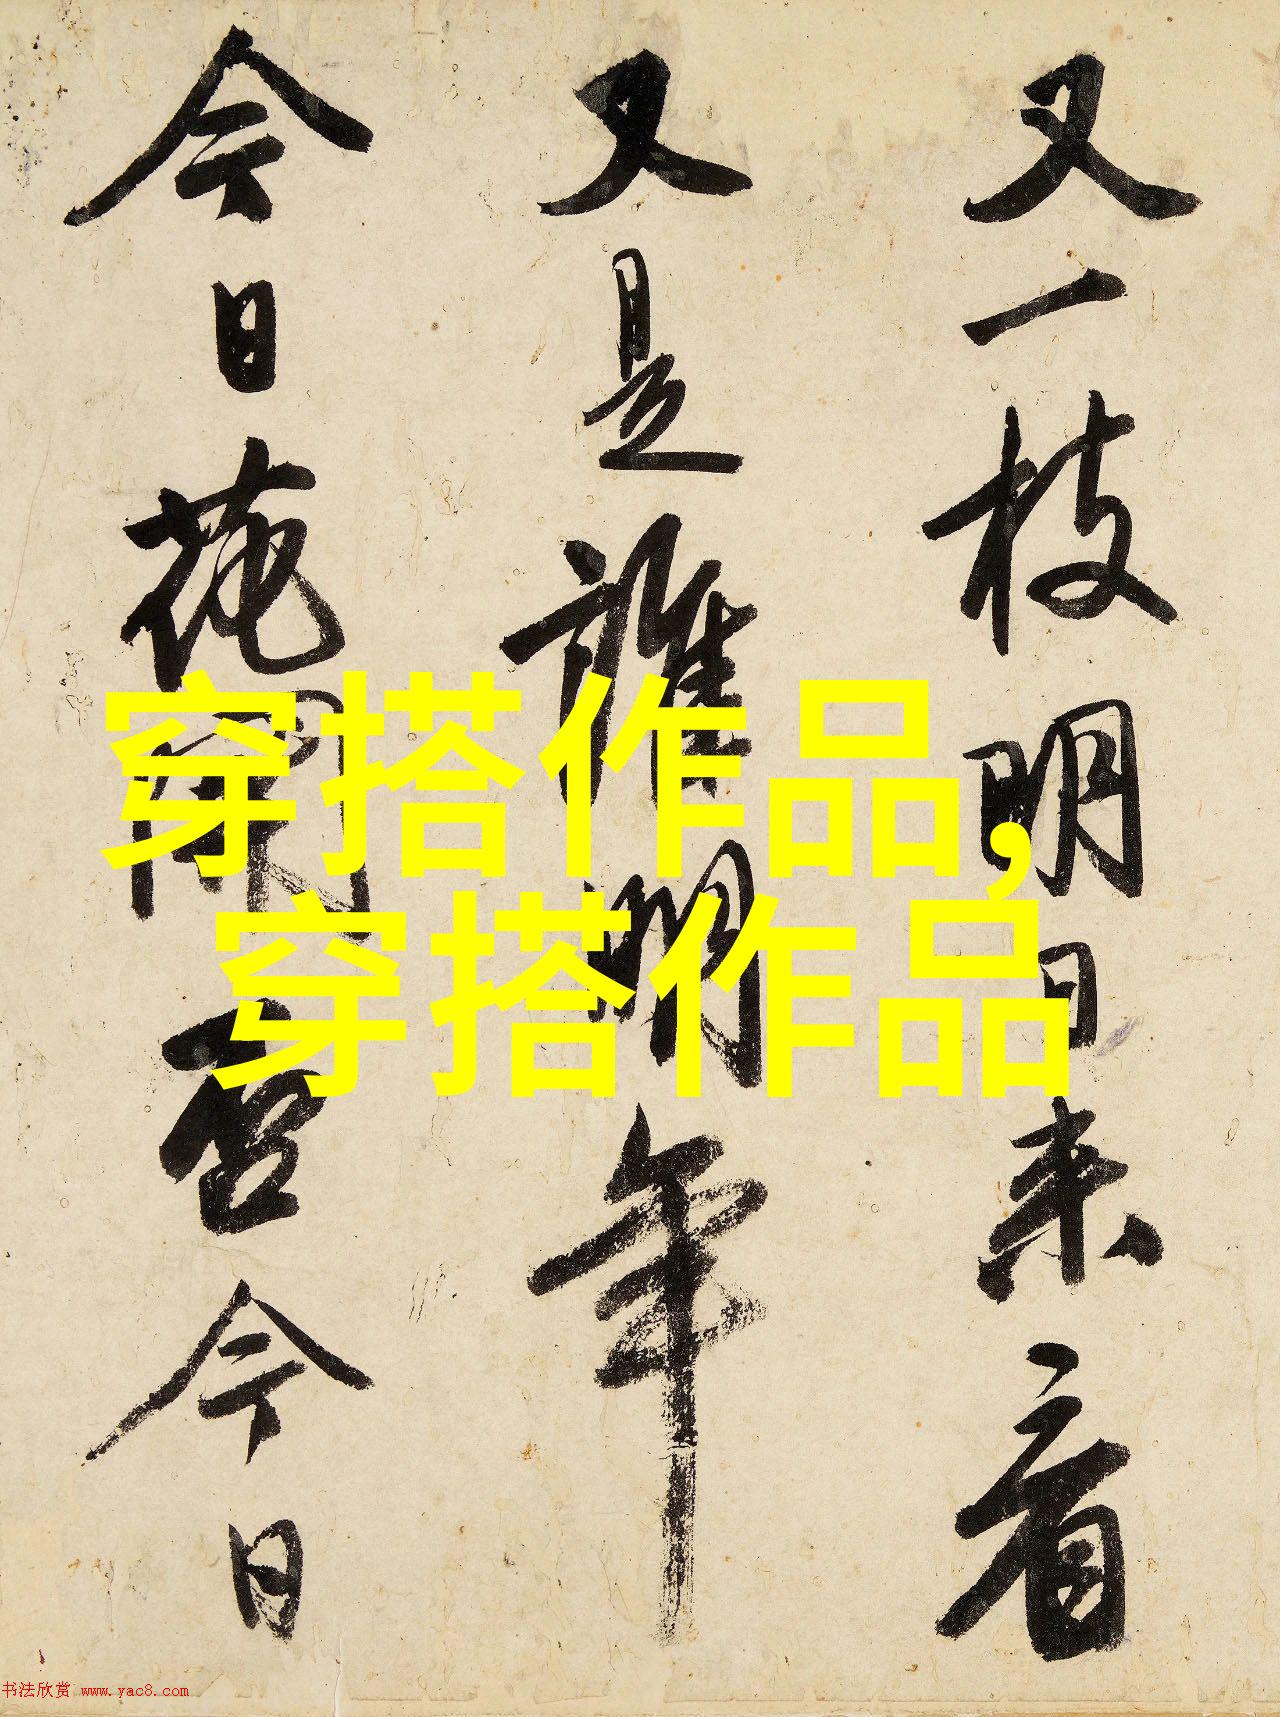 又一枝明日来看
又是誰明年
今日花開否今日
穿搭作品,
穿搭作品
书法欣赏 www.yac8.com